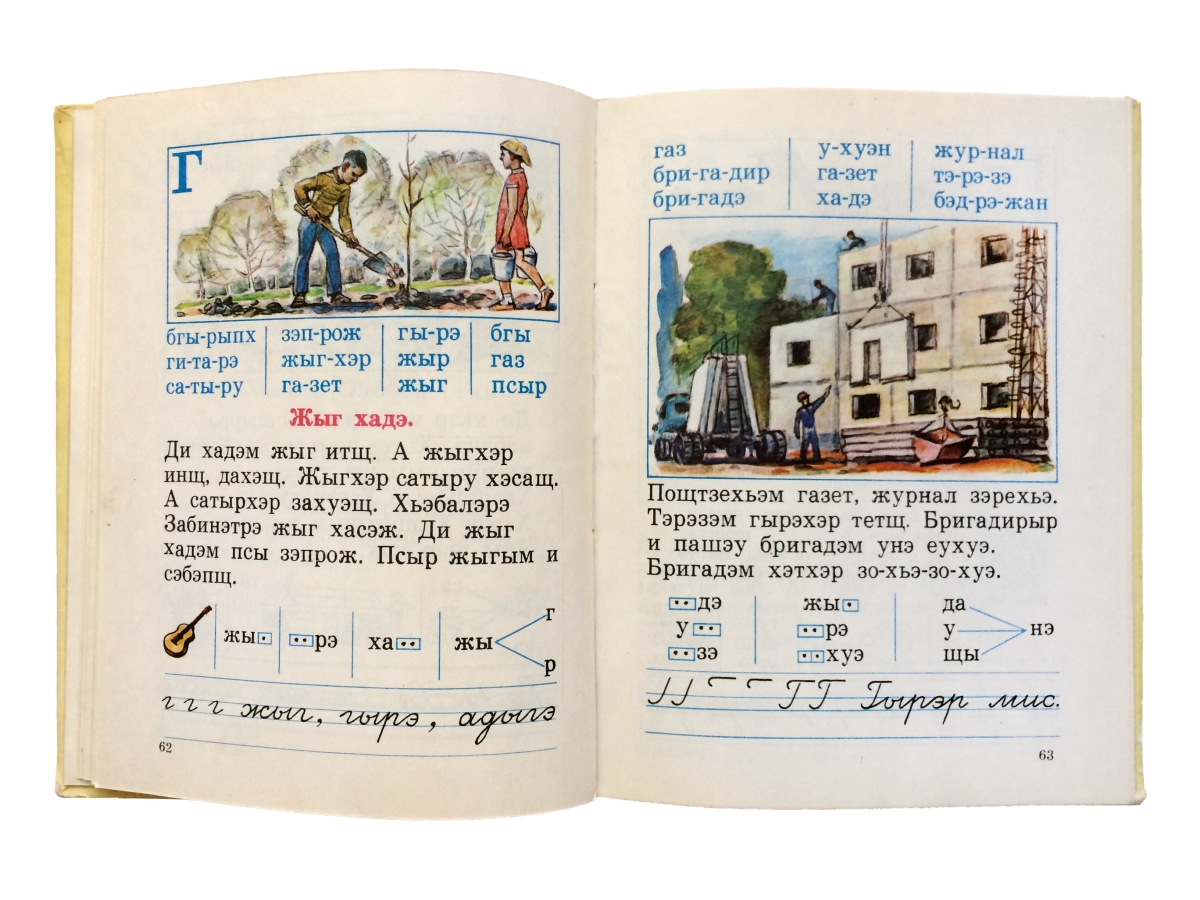 Г
бгы-рыпх зэп-рож гы-рэ бгы
ги-та-рэ жыг-хэр жыр газ
са-ты-ру га-зет жыг псыр
Жыг хадэ.
Ди хадэм жыг итщ. А жыгхэр
инщ, дахэщ. Жыгхэр сатыру хэсащ.
А сатырхэр захуэщ. Хьэбалэрэ
Забинэтрэ жыг хасэж. Ди жыг
хадэм псы зэпрож. Псыр жыгым и
сэбэпщ.
жы рэ ха жы г
р
г г г жыг, гырэ, адыгэ
62
газ у-хуэн жур-нал
бри-га-дир га-зет тэ-рэ-зэ
бри-гадэ ха-дэ бэд-рэ-жан
Пощтзехьэм газет, журнал зэрехьэ.
Тэрэзэм гырэхэр тетщ. Бригадирыр
и пашэу бригадэм унэ еухуэ.
Бригадэм хэтхэр зо-хьэ-зо-хуэ.
дэ жы да
у рэ у нэ
зэ хуэ щы
Г Г Гырэр мис.
63